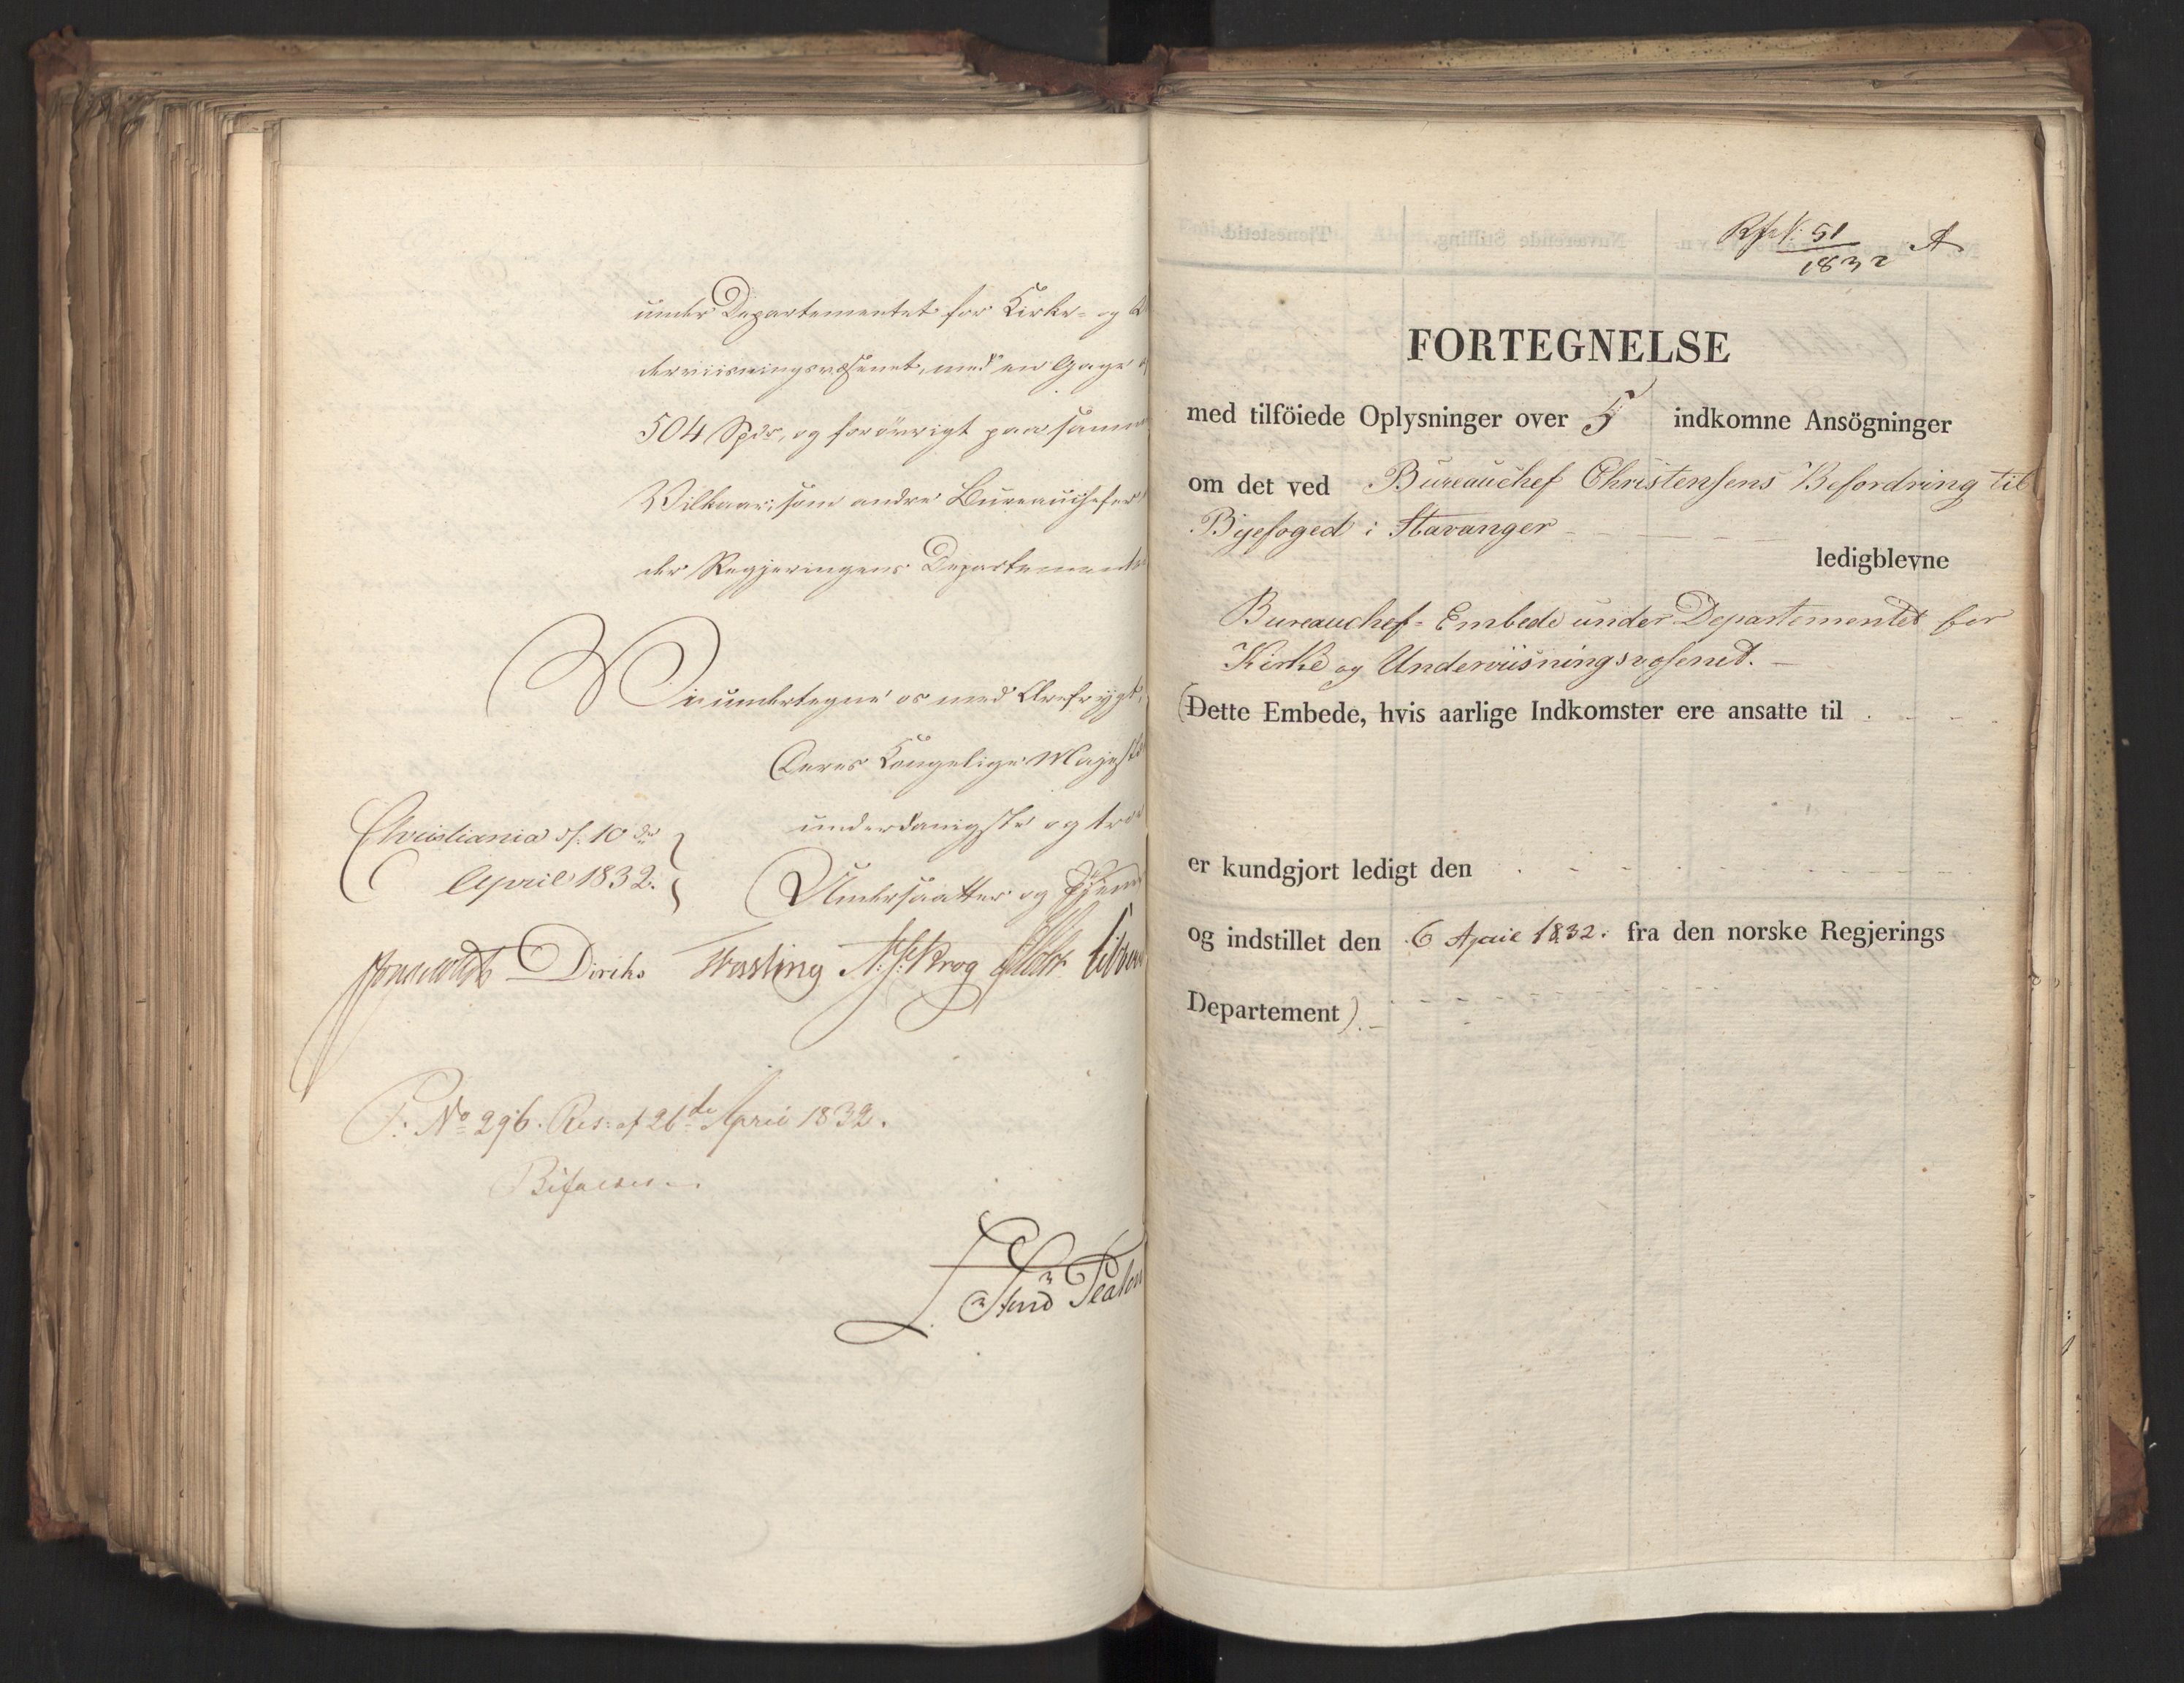 under Departementet for Kirke- og
derviisningsvæsenet, med en Gage
504 Spdr, og forövrigt paa samm
Vilkaar, som andre Bureauchefer
der Regjeringens Departemente
Vi undertegne os med Ærefrygt,
Deres Kongelige Majest
underdanigste og tro
Undersaatter og Tjene
Christiania d. 10de
April 1832.
Diriks Treschow Krog
P: No 296. Res: af 26de April 1832.
Bifaldes.
Rfs N: 51 A
1832
FORTEGNELSE
med tilföiede Oplysninger over 5 indkomne Ansögninger
om det ved Bureauchef Christensens Befordring til
Byefoged i Stavanger
ledigblevne
Bureauchef-Embede under Departementet for
Kirke og Underviisningsvæsenet.
(Dette Embede, hvis aarlige Indkomster ere ansatte til
er kundgjort ledigt den
og indstillet den 6 April 1832. fra den norske Regjerings
Departement).